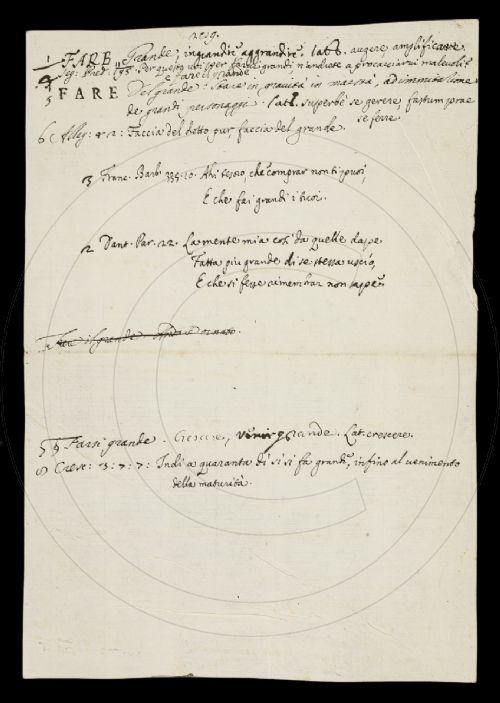 FARE Grande; ingrandire, aggrandire. Latt. augere, amplificare.
Seg: Pred:
e FARE il grande
FARE Del grande: stare in gravità in maestà, ad immitazione
de grandi personaggi. Latt. superbè se gerere, fastum prae
se ferre.
6 Alleg: Faccia del dotto pur faccia del grande.
3 Franc. Barb. Ahi tesoro, che comprar non ti puoi,
E che fai grandi i tuoi.
2 Dant. Par. 22. La mente mia così da quelle dape
Fatta più grande di se stessa uscio,
E che si fesse rimembrar non sape.
il grande
Farsi grande. Crescere, venir grande. Lat. crescere.
8 Cresc: 3: 7: 7: Indi a quaranta dì sì si fa grande, infino al venimento
della maturità.